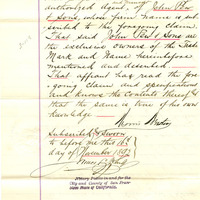 authorized Agent, of John Pew
& Sons, whose firm Name is sub-
scribed to the foregoing Claim
That said John Pew & Sons are
the exclusive owners of the Trade
Mark and Name hereinbefore
mentioned and described.
That affiant has read the fore-
going Claim and specification
and knows the Contents thereof &
that the same is true of his own
knowledge
Subscribed & Sworn
to before me this 16th
day of November 1892
Notary Public in and for the
City and County of San Fran-
cisco State of California.